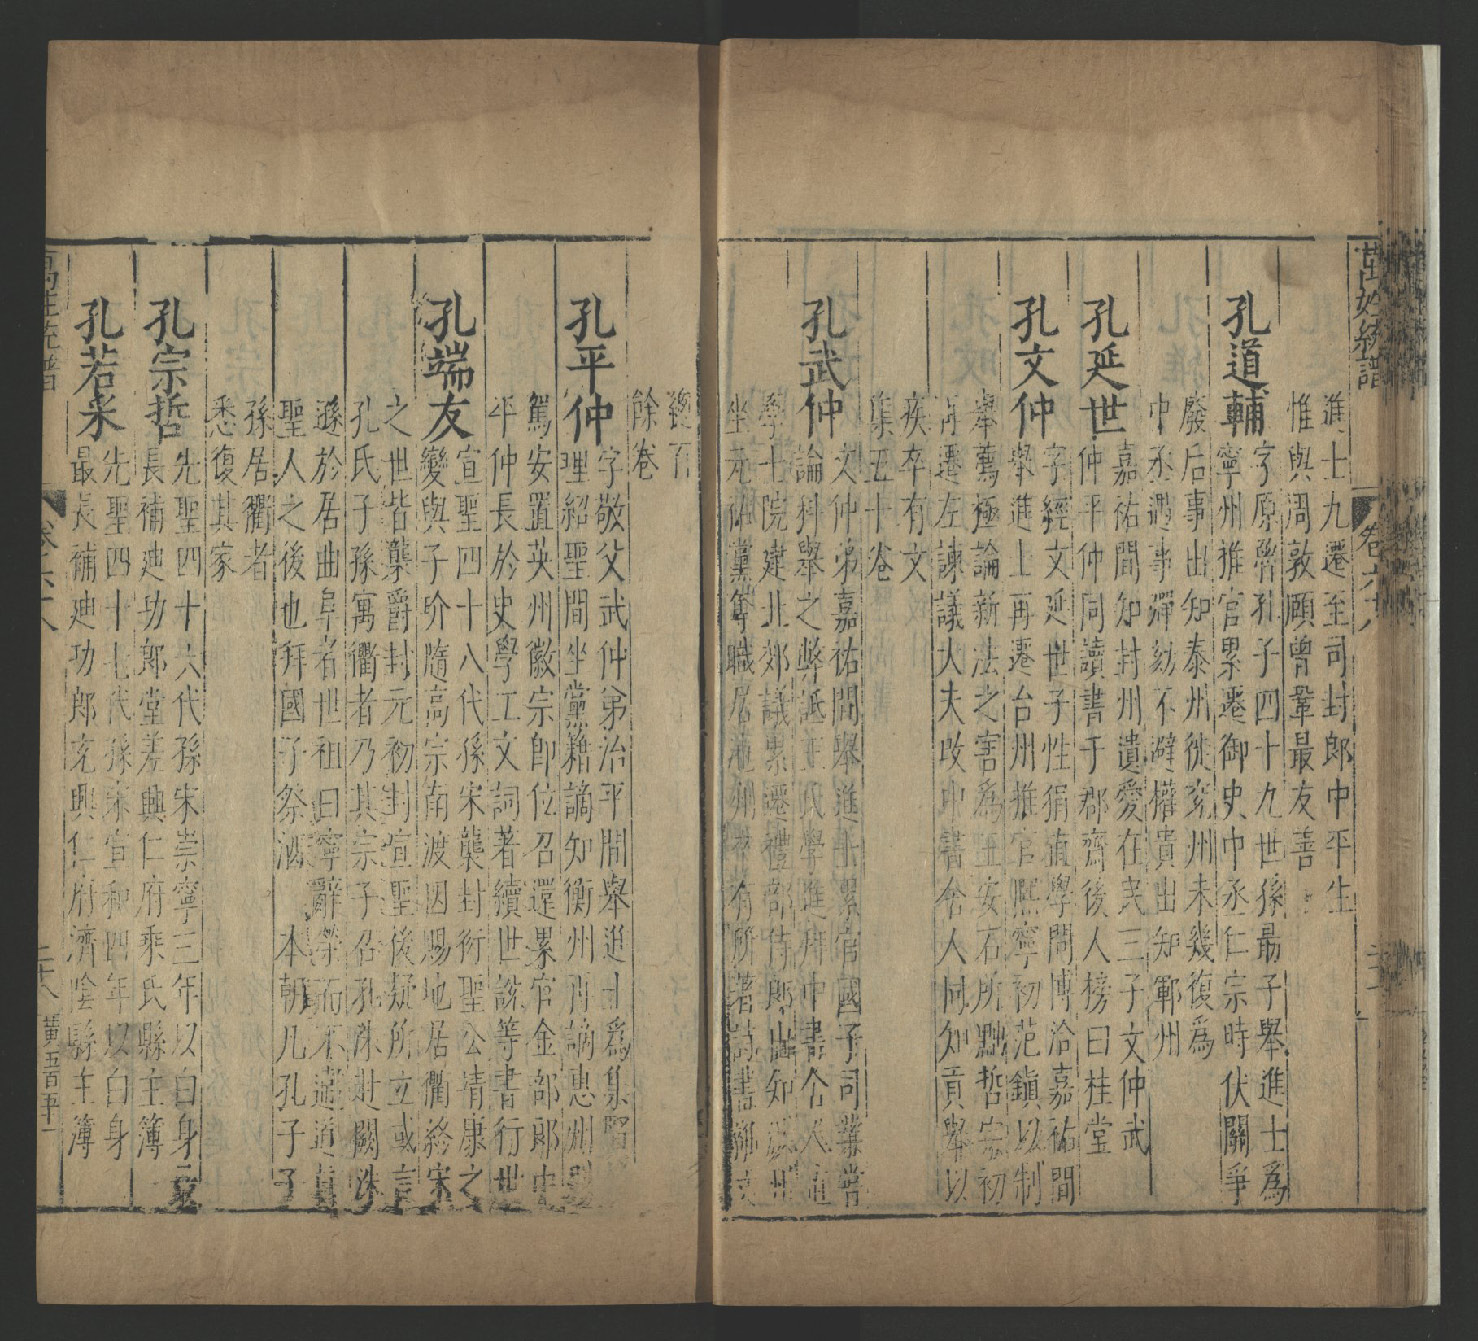 萬姓統譜
卷六八
進士九遷至司封郎中平生
惟與周敦頤曾鞏最友善
孔道輔
字原魯孔子四十九世孫最子舉進士為
寧州推官累遷御史中丞仁宗時伏闕爭
廢后事出知泰州徙兗州未幾復為
中丞遇事彈劾不避權貴出知鄆州
孔延世
嘉祐間知封州遺愛在民三子文仲武
仲平仲同讀書于郡齋後人榜曰桂堂
孔文仲
字經文延世子性狷直學問博洽嘉祐間
舉進士再遷台州推官熙寧初范鎮以制
舉薦極論新法之害為王安石所黜哲宗初
再遷左諫議大夫改中書舍人同知貢舉以
疾卒有文
集五十卷
孔武仲
文仲弟嘉祐間舉進士累官國子司業嘗
論科舉之弊詆王氏學進用中書舍人直
學士院建北郊議累遷禮部侍郎出知
坐元祐黨奪職居池州卒有所著詩書
餘卷
孔平仲
字敬父武仲弟治平間舉進士為集賢
理紹聖間坐黨籍謫知衡州再謫惠州
駕安置英州徽宗即位召還累官金部郎中
平仲長於史學工文詞著續世說等書行世
孔端友
宣聖四十八代孫宋襲封衍聖公靖康之
變與子玠隨高宗南渡因賜地居衢終宋
之世皆襲爵封元初封宣聖後疑所立或言
孔氏子孫寓衢者乃其宗子召孔洙赴闕洙
遜於居曲阜者世祖曰寧辭榮而不違道真
聖人之後也拜國子祭酒 本朝凡孔子子
孫居衢者
悉復其家
孔宗哲
先聖四十六代孫宋崇寧三年以白身
長補迪功郎堂差興仁府乘氏縣主簿
孔若采
先聖四十七代孫宋宣和四年以白身
最長補迪功郎充興仁府濟陰縣主簿
萬姓統譜
卷六八
二十八